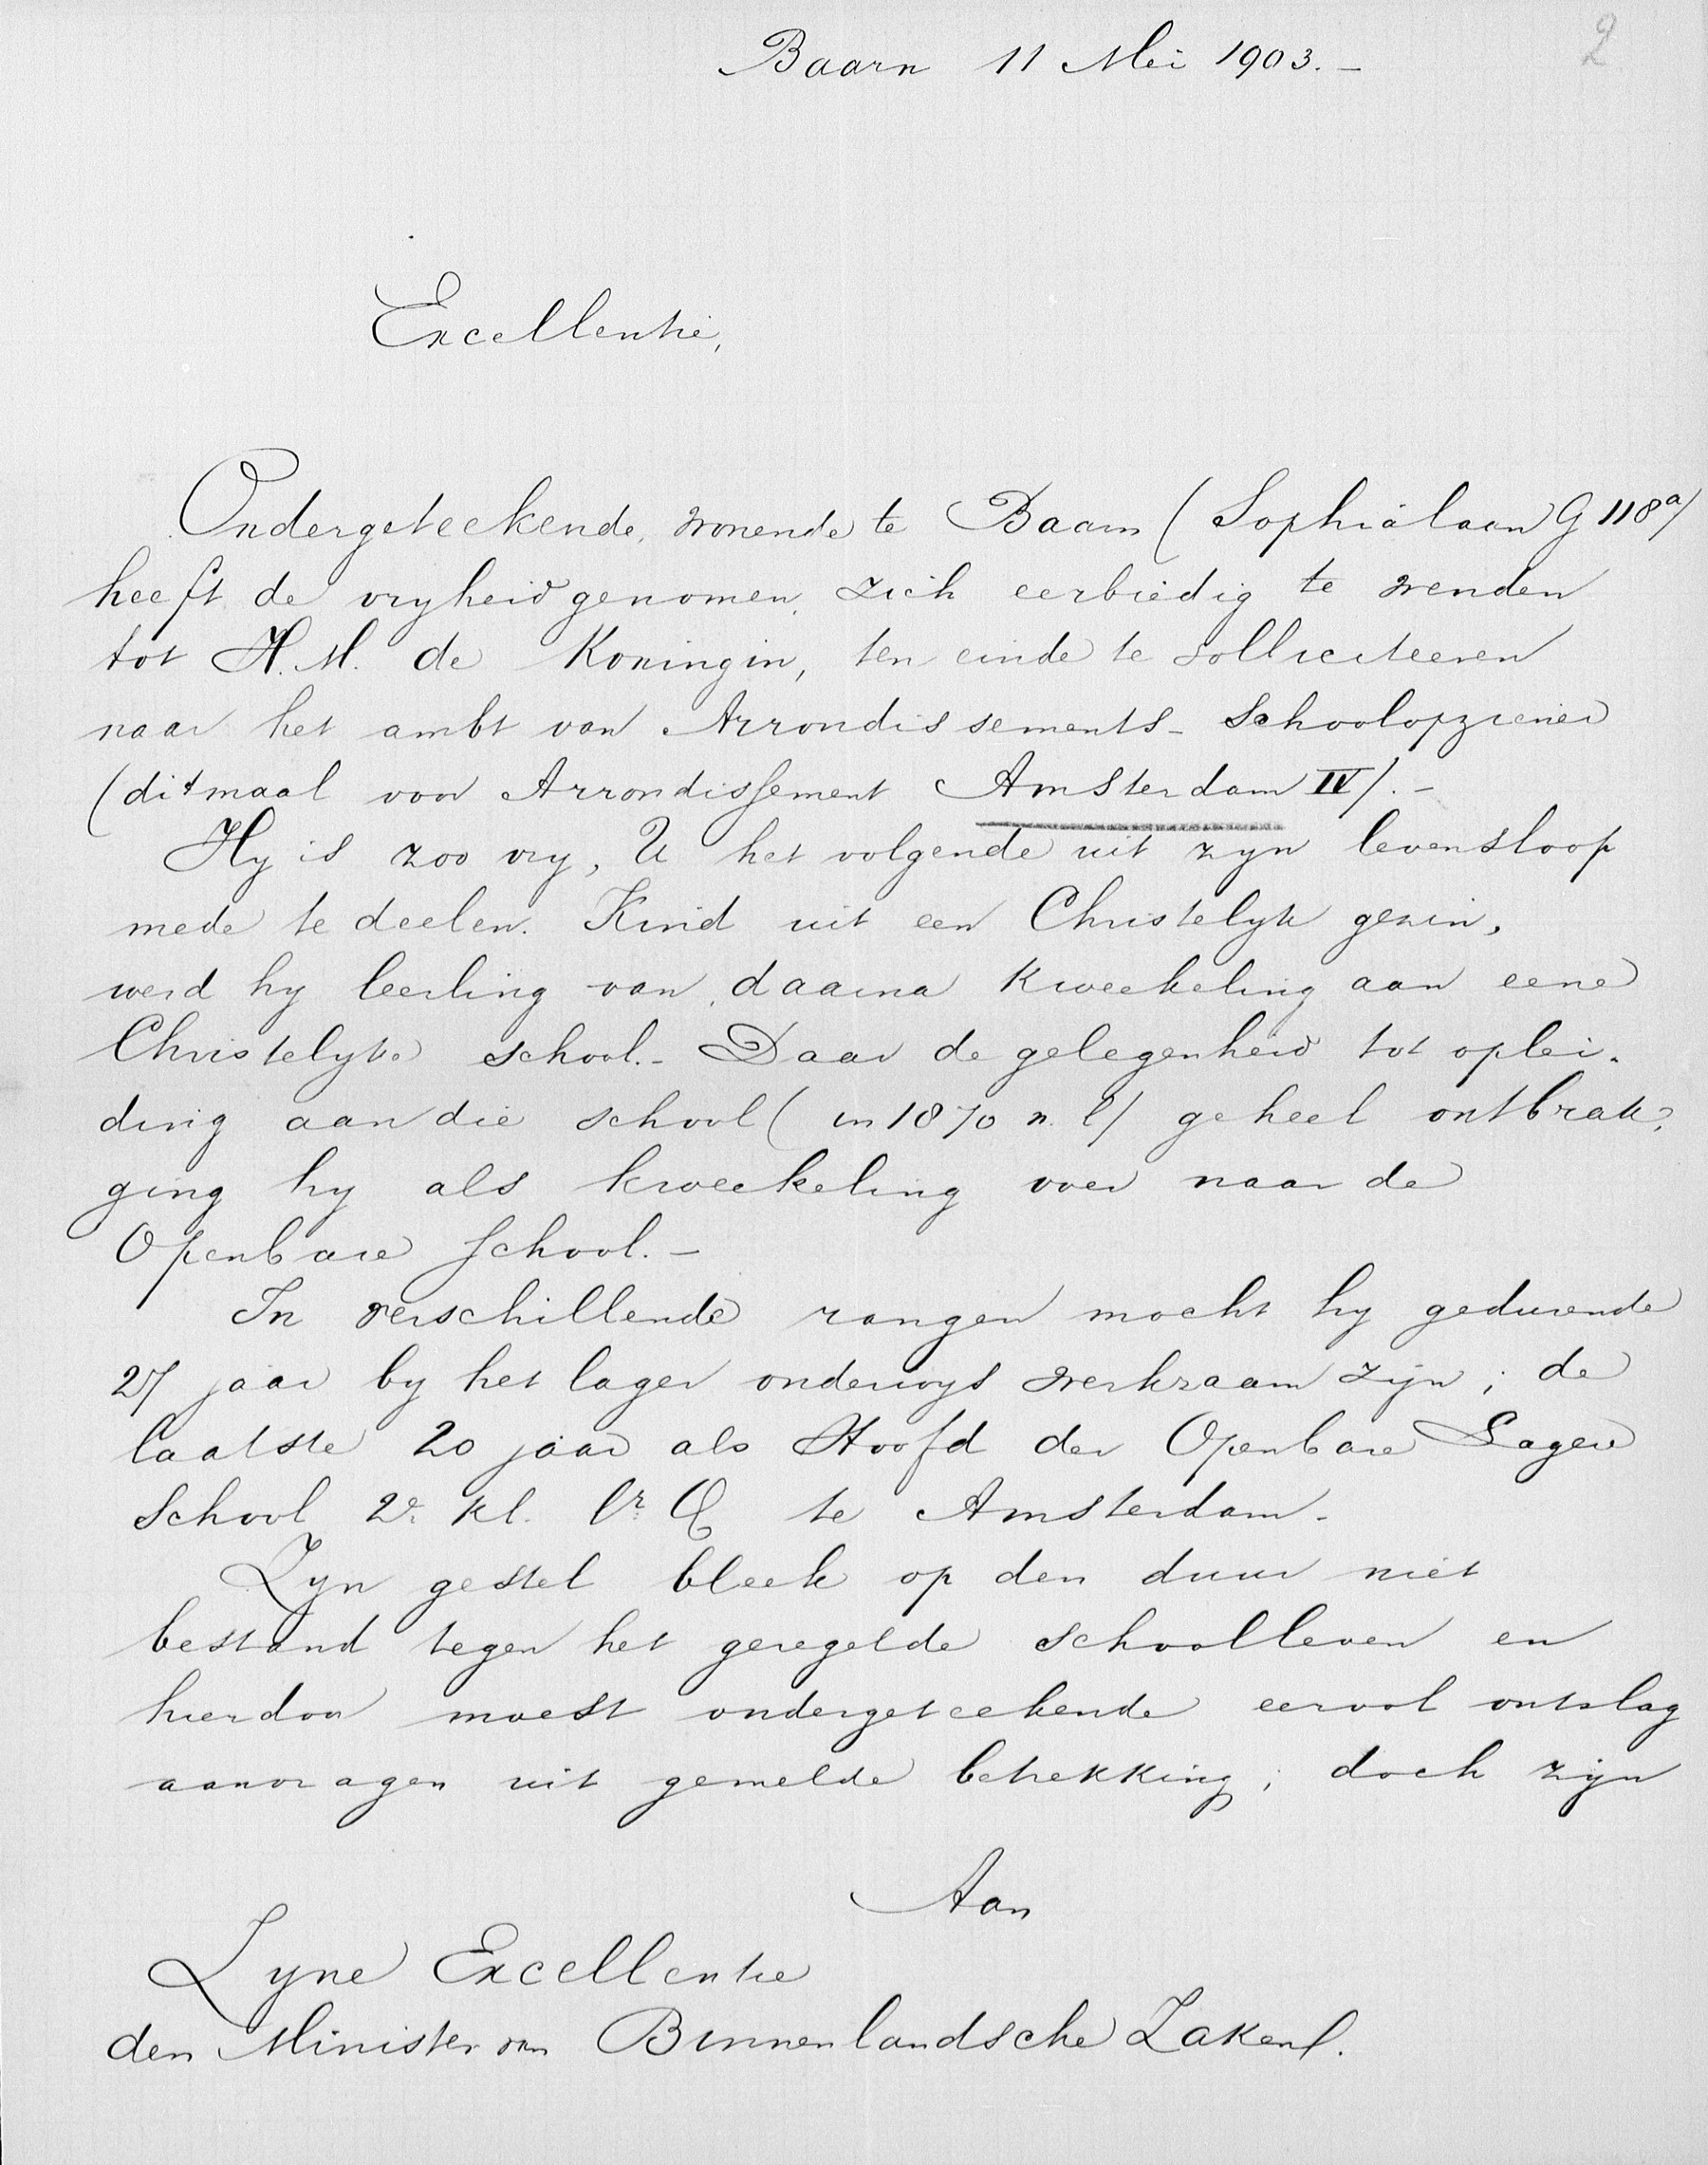 2
Baarn 11 Mei 1903. -
Excellentie,
Ondergeteekende, wonende te Baarn (Sophialaan G 118a)
heeft de vryheid genomen, zich eerbiedig te wenden
tot H.M. de Koningin, ten einde te solliciteeren
naar het ambt van Arrondissements-Schoolopziener
(ditmaal voor Arrondissement Amsterdam IV). -
Hy is zoo vry, U het volgende uit zyn levensloop
mede te deelen. Kind uit een Christelyk gezin,
werd hy leerling van, daarna kweekeling aan eene
Christelyke school. - Daar de gelegenheid tot oplei-
ding aan die school (in 1870 n.l) geheel ontbrak,
ging hy als kweekeling over naar de
Openbare School. -
In verschillende rangen mocht hy gedurende
27 jaar by het lager onderwys werkzaam zijn; de
laatste 20 jaar als Hoofd der Openbare Lagere
School 2e kl. lr. te Amsterdam.
Zyn gestel bleek op den duur niet
bestand tegen het geregelde schoolleven en
hierdoor moest ondergeteekende eervol ontslag
aanvragen uit gemelde betrekking; doch zijn
Aan
Zyne Excellentie
den Minister van Binnenlandsche Zaken.